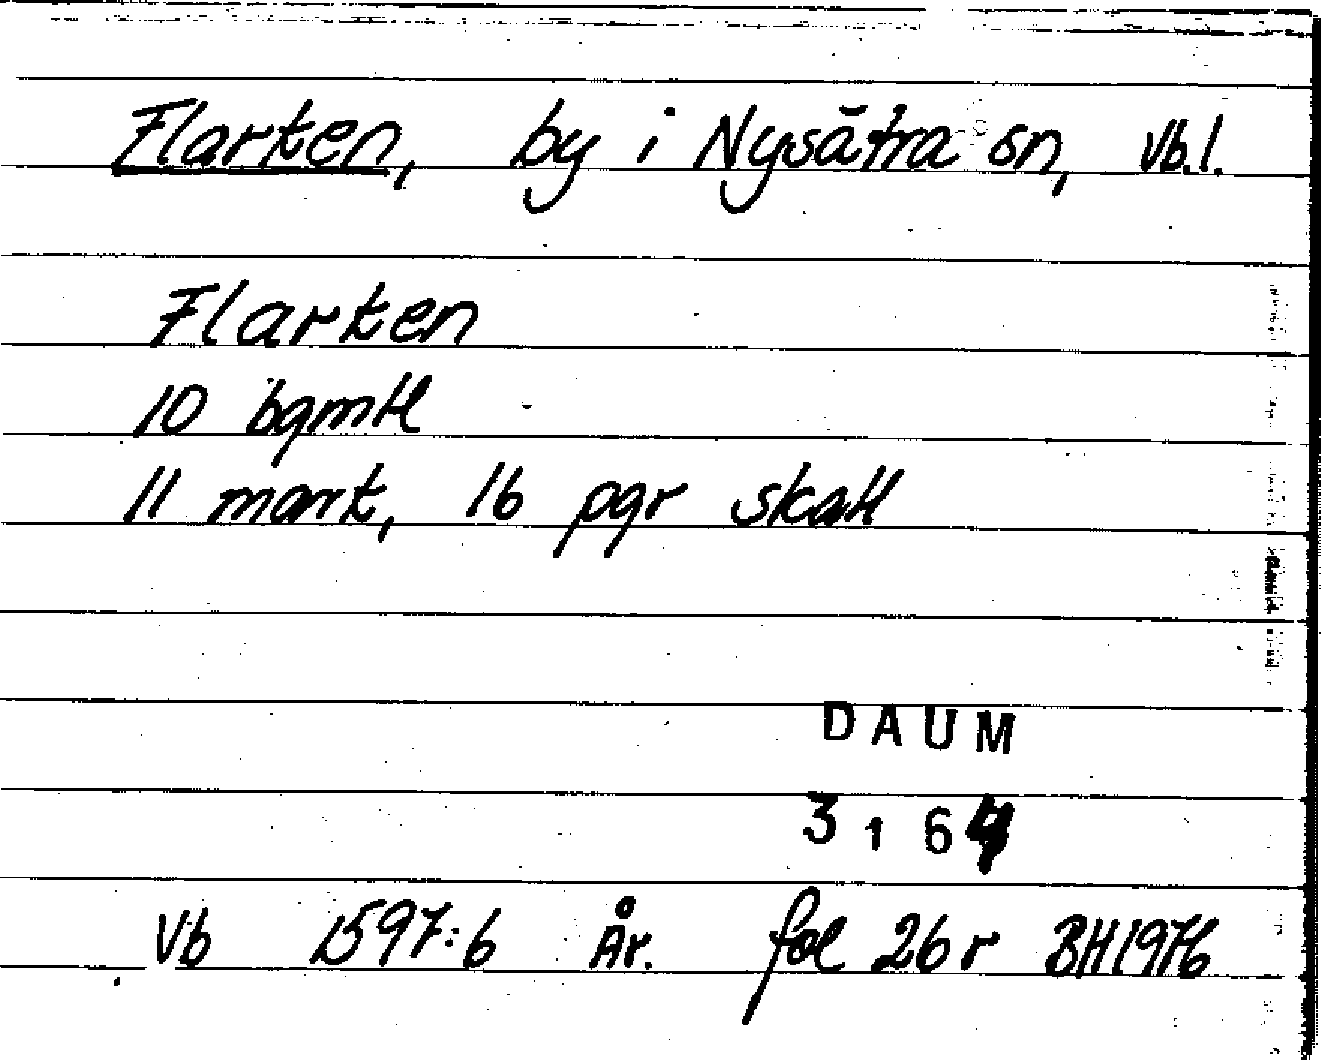 Flarken, by i Nysätra sn, Vb.l.
Flarken
10 bgmtl
11 mark, 16 pgr skatt
DAUM
3164
Vb 1597:6 År. fol 26 r BH 1976